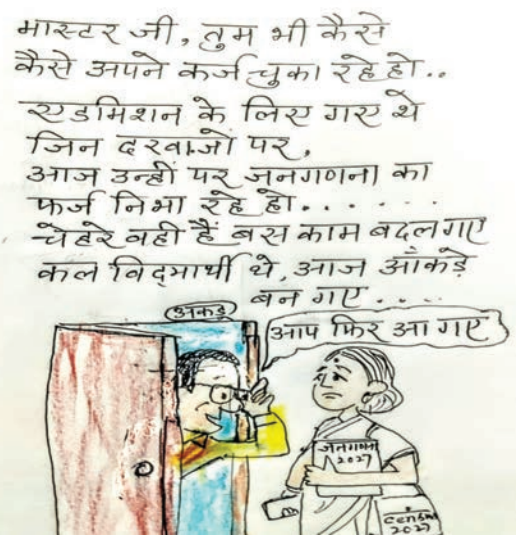 मास्टर जी, तुम भी कैसे
कैसे अपने कर्ज चुका रहे हो..
एडमिशन के लिए गए थे
जिन दरवाजों पर,
आज उन्हीं पर जनगणना का
फर्ज निभा रहे हो......
चेहरे वही हैं बस काम बदल गए
कल विद्यार्थी थे, आज आँकड़े
बन गए....
अकड़
आप फिर आ गए
जनगणना
2027
census
2027